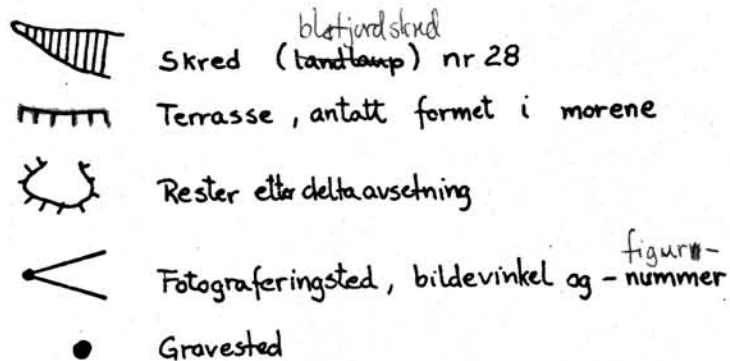 bløtjordskred
Skred (tandlaup) nr 28
Terrasse, antatt formet i morene
Rester etter deltaavsetning
figur-
Fotograferingsted, bildevinkel og - nummer
Gravested